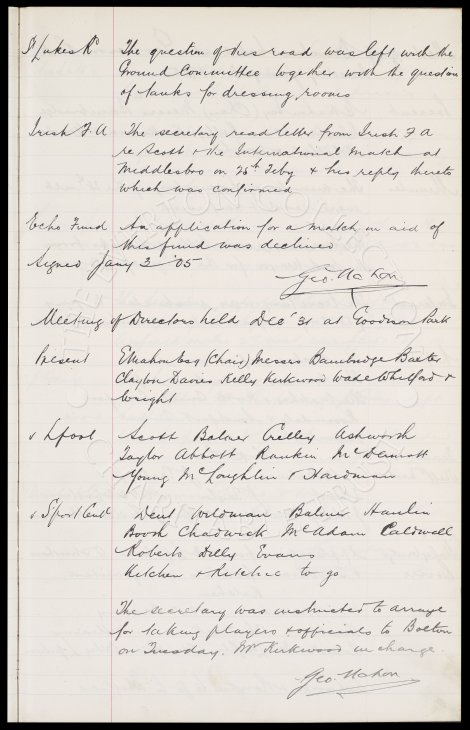 St Lukes Rd The question of this road was left with the
Ground Committee together with the question
of tanks for dressing rooms
Irish F.A The secretary read letter from Irish F A
re Scott & the International Match at
Middlesbro on 25th Feby & his reply thereto
which was confirmed
Echo Fund An application for a match in aid of
this fund was declined
Signed Jany 3 '05
Geo. Mahon
Meeting of Directors held Dec 31 at Goodison Park
Present E Mahon Esq (Chair) Messrs Bainbridge Baxter
Clayton Davies Kelly Kirkwood Wade Whitford &
Wright
v Lpool Scott Balmer Crelley Ashworth
Taylor Abbott Rankin McDermott
Young McLoughlin & Hardman
v Sport Cent Dent Wildman Balmer Hanlin
Booth Chadwick McAdam Caldwell
Roberts Dilly Evans
Kitchen & Ritchie to go
The secretary was instructed to arrange
for taking players & officials to Bolton
on Tuesday. Mr Kirkwood in charge.
Geo. Mahon